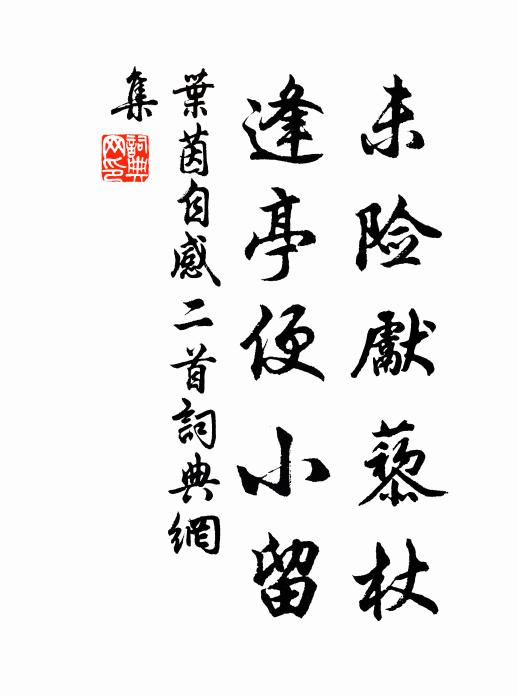 未险獻藜杖
逢亭便小留
葉茵自感二首詞典網
集
詞典
网印